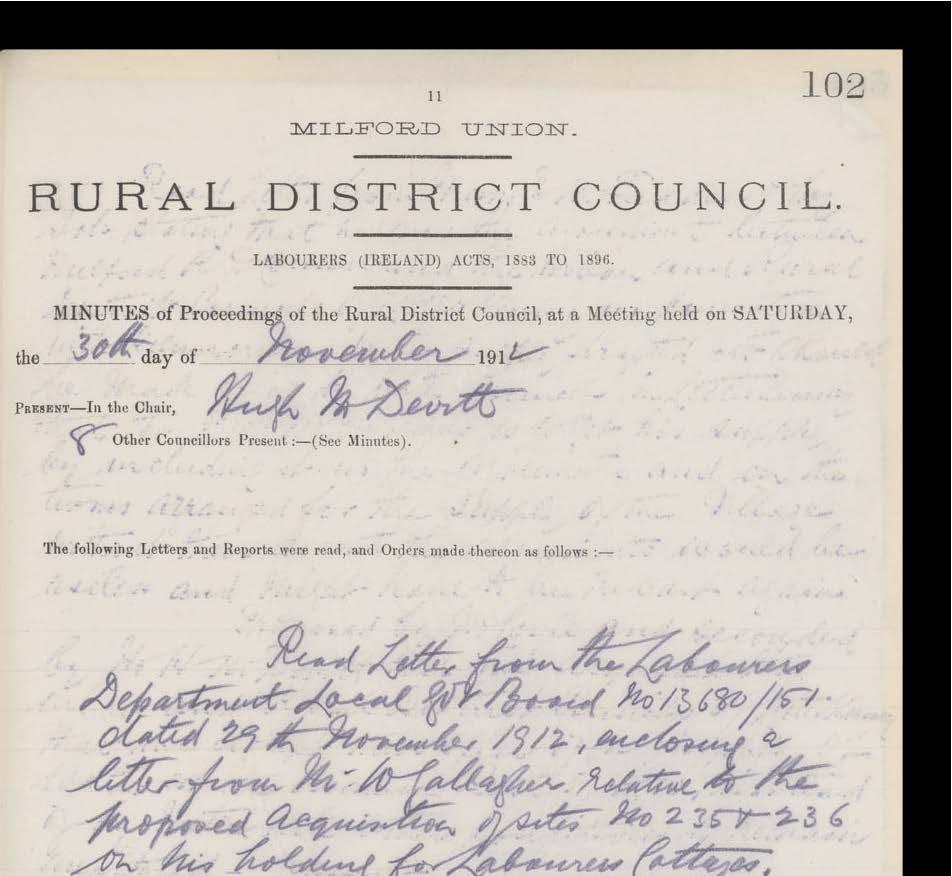 102
11
MILFORD UNION.
RURAL DISTRICT COUNCIL.
LABOURERS (IRELAND) ACTS, 1883 TO 1896.
MINUTES of Proceedings of the Rural District Council, at a Meeting held on SATURDAY,
the 30th day of November 1912
PRESENT—In the Chair, Hugh McDevitt
8 Other Councillors Present :—(See Minutes).
The following Letters and Reports were read, and Orders made thereon as follows :—
Read Letter from the Labourers
Department Local Govt Board No 13680/151
dated 29th November 1912, enclosing a
letter from Mr W Gallagher relative to the
proposed Acquisition of sites No 235 & 236
on his holding for Labourers Cottages.